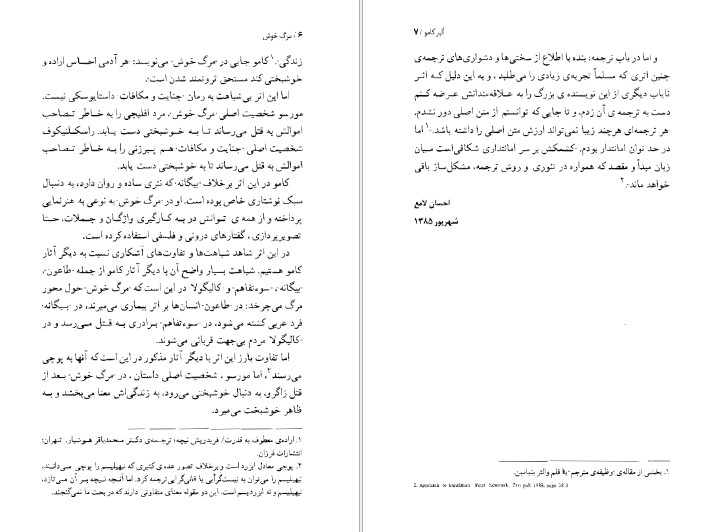 ۶ / مرگ خوش
زندگی.»۱ کامو جایی در «مرگ خوش» می‌نویسد: هر آدمی احساس اراده و
خوشبختی کند مستحق ثروتمند شدن است.»
اما این اثر بی‌شباهت به رمان «جنایت و مکافات» داستایوسکی نیست.
مورسو شخصیت اصلی «مرگ خوش»، مرد افلیجی را به خاطر تصاحب
اموالش به قتل می‌رساند تا به خوشبختی دست یابد. راسکلنیکوف
شخصیت اصلی «جنایت و مکافات» هم پیرزنی را به خاطر تصاحب
اموالش به قتل می‌رساند تا به خوشبختی دست یابد.
کامو در این اثر برخلاف «بیگانه» که نثری ساده و روان دارد، به دنبال
سبک نوشتاری خاص بوده است. او در «مرگ خوش» به نوعی به هنرنمایی
پرداخته و از همه ی توانش در به کارگیری واژگان و جملات، حتا
تصویرپردازی، گفتارهای درونی و فلسفی استفاده کرده است.
در این اثر شاهد شباهت‌ها و تفاوت‌های آشکاری نسبت به دیگر آثار
کامو هستیم. شباهت بسیار واضح آن با دیگر آثار کامو از جمله «طاعون»،
«بیگانه»، «سوءتفاهم» و «کالیگولا» در این است که «مرگ خوش» حول محور
مرگ می‌چرخد: در «طاعون» انسان‌ها بر اثر بیماری می‌میرند، در «بیگانه»
فرد عربی کشته می‌شود، در «سوءتفاهم» برادری به قتل می‌رسد و در
«کالیگولا» مردم بی‌جهت قربانی می‌شوند.
اما تفاوت بارز این اثر با دیگر آثار مذکور در این است که آنها به پوچی
می‌رسند۲، اما مورسو، شخصیت اصلی داستان، در «مرگ خوش» بعد از
قتل زاگرو، به دنبال خوشبختی می‌رود، به زندگی‌اش معنا می‌بخشد و به
ظاهر خوشبخت می‌میرد.
۱. اراده‌ی معطوف به قدرت/ فریدریش نیچه؛ ترجمه‌ی دکتر محمدباقر هوشیار، تهران:
انتشارات فرزان.
۲. پوچی معادل ابزرد است و برخلاف تصور عده‌ی کثیری که نیهیلیسم را پوچی می‌دانند،
نیهیلیسم را می‌توان به نیست‌گرایی یا فنا‌گرایی ترجمه کرد. اما آنچه نیچه بر آن می‌تازد،
نیهیلیسم و نه ابزردیسم است. این دو مقوله معنای متفاوتی دارند که در بحث ما نمی‌گنجند.
آلبر کامو / ۷
و اما در باب ترجمه: بنده با اطلاع از سختی‌ها و دشواری‌های ترجمه‌ی
چنین اثری که مسلماً تجربه‌ی زیادی را می‌طلبد، و به این دلیل که اثر
نایاب دیگری از این نویسنده ی بزرگ را به علاقه‌مندانش عرضه کنم
دست به ترجمه ی آن زدم، و تا جایی که توانستم از متن اصلی دور نشدم.
«هر ترجمه‌ای هرچند زیبا نمی‌تواند ارزش متن اصلی را داشته باشد.»۱ اما
در حد توان امانتدار بودم. «کشمکش بر سر امانتداری شکافی است میان
زبان مبدأ و مقصد که همواره در تئوری و روش ترجمه، مشکل‌ساز باقی
خواهد ماند.»۲
احسان لامع
شهریور ۱۳۸۵
۱. بخشی از مقاله‌ی «وظیفه‌ی مترجم» به قلم والتر بنیامین.
2. Approach to translation. Peter Newmark, 1988, page